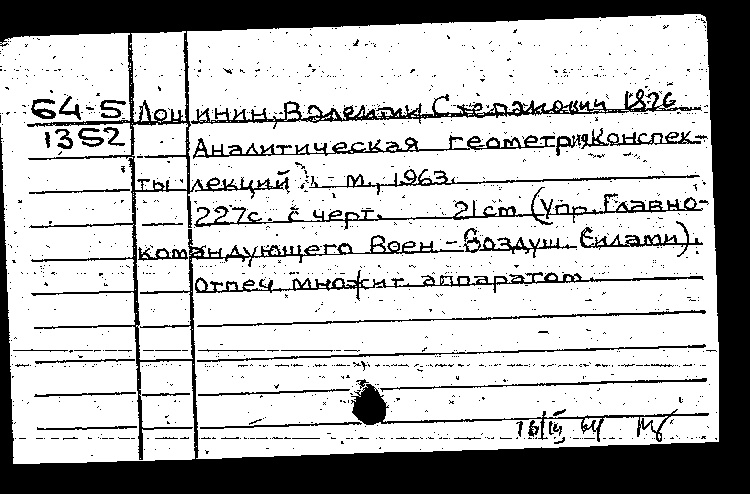 64-5 Лошинин, Валентин Степанович 1926
1352 Аналитическая геометрия Конспек-
ты лекций). - М., 1963.
227с. с черт. 21 см (Упр. Главно-
командующего Воен.-Воздуш. Силами).
Отпеч. множит. аппаратом.
64